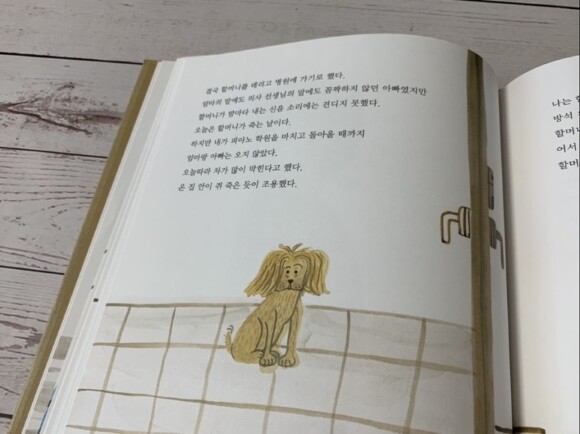 결국 할머니를 데리고 병원에 가기로 했다.
엄마의 말에도 의사 선생님의 말에도 꼼짝하지 않던 아빠였지만
할머니가 밤마다 내는 신음 소리에는 견디지 못했다.
오늘은 할머니가 죽는 날이다.
하지만 내가 피아노 학원을 마치고 돌아올 때까지
엄마랑 아빠는 오지 않았다.
오늘따라 차가 많이 막힌다고 했다.
온 집 안이 쥐 죽은 듯이 조용했다.
나는
방석
할머
어서
할머